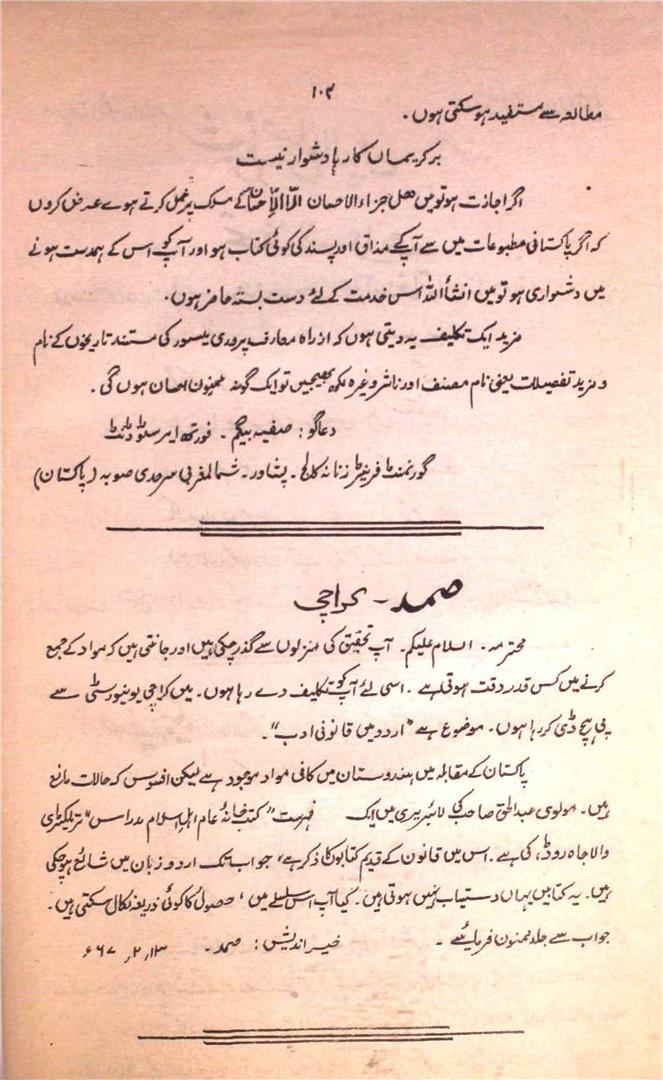 ۱۰۲
مطالعہ سے مستفید ہو سکتی ہوں۔
بر کریماں کار ہا دشوار نیست
اگر اجازت ہو تو میں ھل جزاء الاحسان الّا الاِحسان کے مسلک پر عمل کرتے ہوے عرض کروں
کہ اگر پاکستانی مطبوعات میں سے آپ کے مذاق اور پسند کی کوئی کتاب ہو اور آپ کو اس کے ہمدست ہونے
میں دشواری ہو تو میں انشأ اللہ اس خدمت کے لئے دست بستہ حاضر ہوں۔
مزید ایک تکلیف یہ دیتی ہوں کہ از راہ معارف پروری میسور کی مستند تاریخوں کے نام
و مزید تفصیلات یعنی نام مصنف اور ناشر وغیرہ لکھ بھیجیں تو ایک گونہ ممنون احسان ہوں گی۔
دعاگو: صفیہ بیگم۔ فورتھ ایر سٹوڈنٹ
گورنمنٹ فرنٹیر زنانہ کالج۔ پشاور۔ شمالمغربی سرحدی صوبہ (پاکستان)
صمد ۔ کراچی
محترمہ۔ السلام علیکم۔ آپ تحقیق کی منزلوں سے گذر چکی ہیں اور جانتی ہیں کہ مواد کے جمع
کرنے میں کس قدر دقت ہوتی ہے۔ اسی لئے آپ کو تکلیف دے رہا ہوں۔ میں کراچی یونیورسٹی سے
پی ایچ ڈی کر رہا ہوں۔ موضوع ہے "اردو میں قانونی ادب"۔
پاکستان کے مقابلہ میں ہندوستان میں کافی مواد موجود ہے لیکن افسوس کہ حالات مانع
ہیں۔ مولوی عبدالحق صاحب کی لائبریری میں ایک فہرست "کتب خانۂ عام اہل اسلام مدراس" ترپلیکیڑی
والا جاہ روڈ، کی ہے۔ اس میں قانون کے قدیم کتابوں کا ذکر ہے، جو اب تک اردو زبان میں شائع ہو چکی
ہیں۔ یہ کتابیں یہاں دستیاب نہیں ہوتی ہیں۔ کیا آپ اس سلسلے میں، حصول کا کوئی ذریعہ نکال سکتی ہیں۔
جواب سے جلد ممنون فرمائیے۔ خیر اندیش: صمد۔ ۱۳، ۲، ۶۷ء